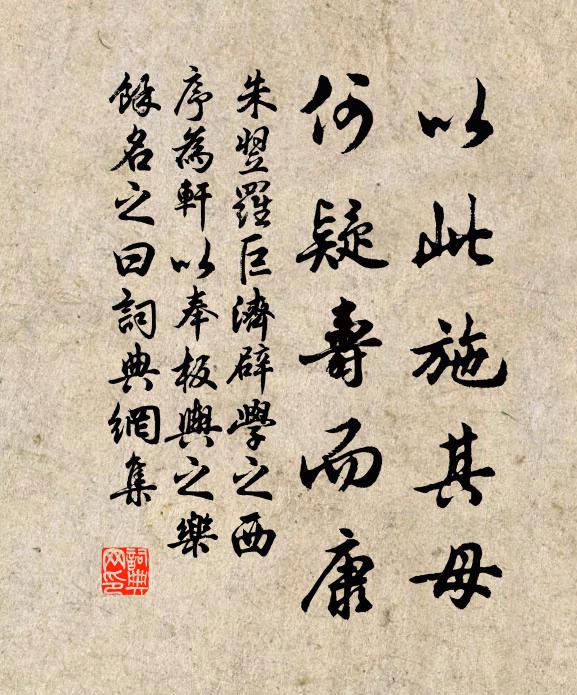 以此施其母
何疑壽而康
朱翌羅巨濟辟學之西
序為軒以奉板輿之樂
餘名之曰詞典網集
詞典网印